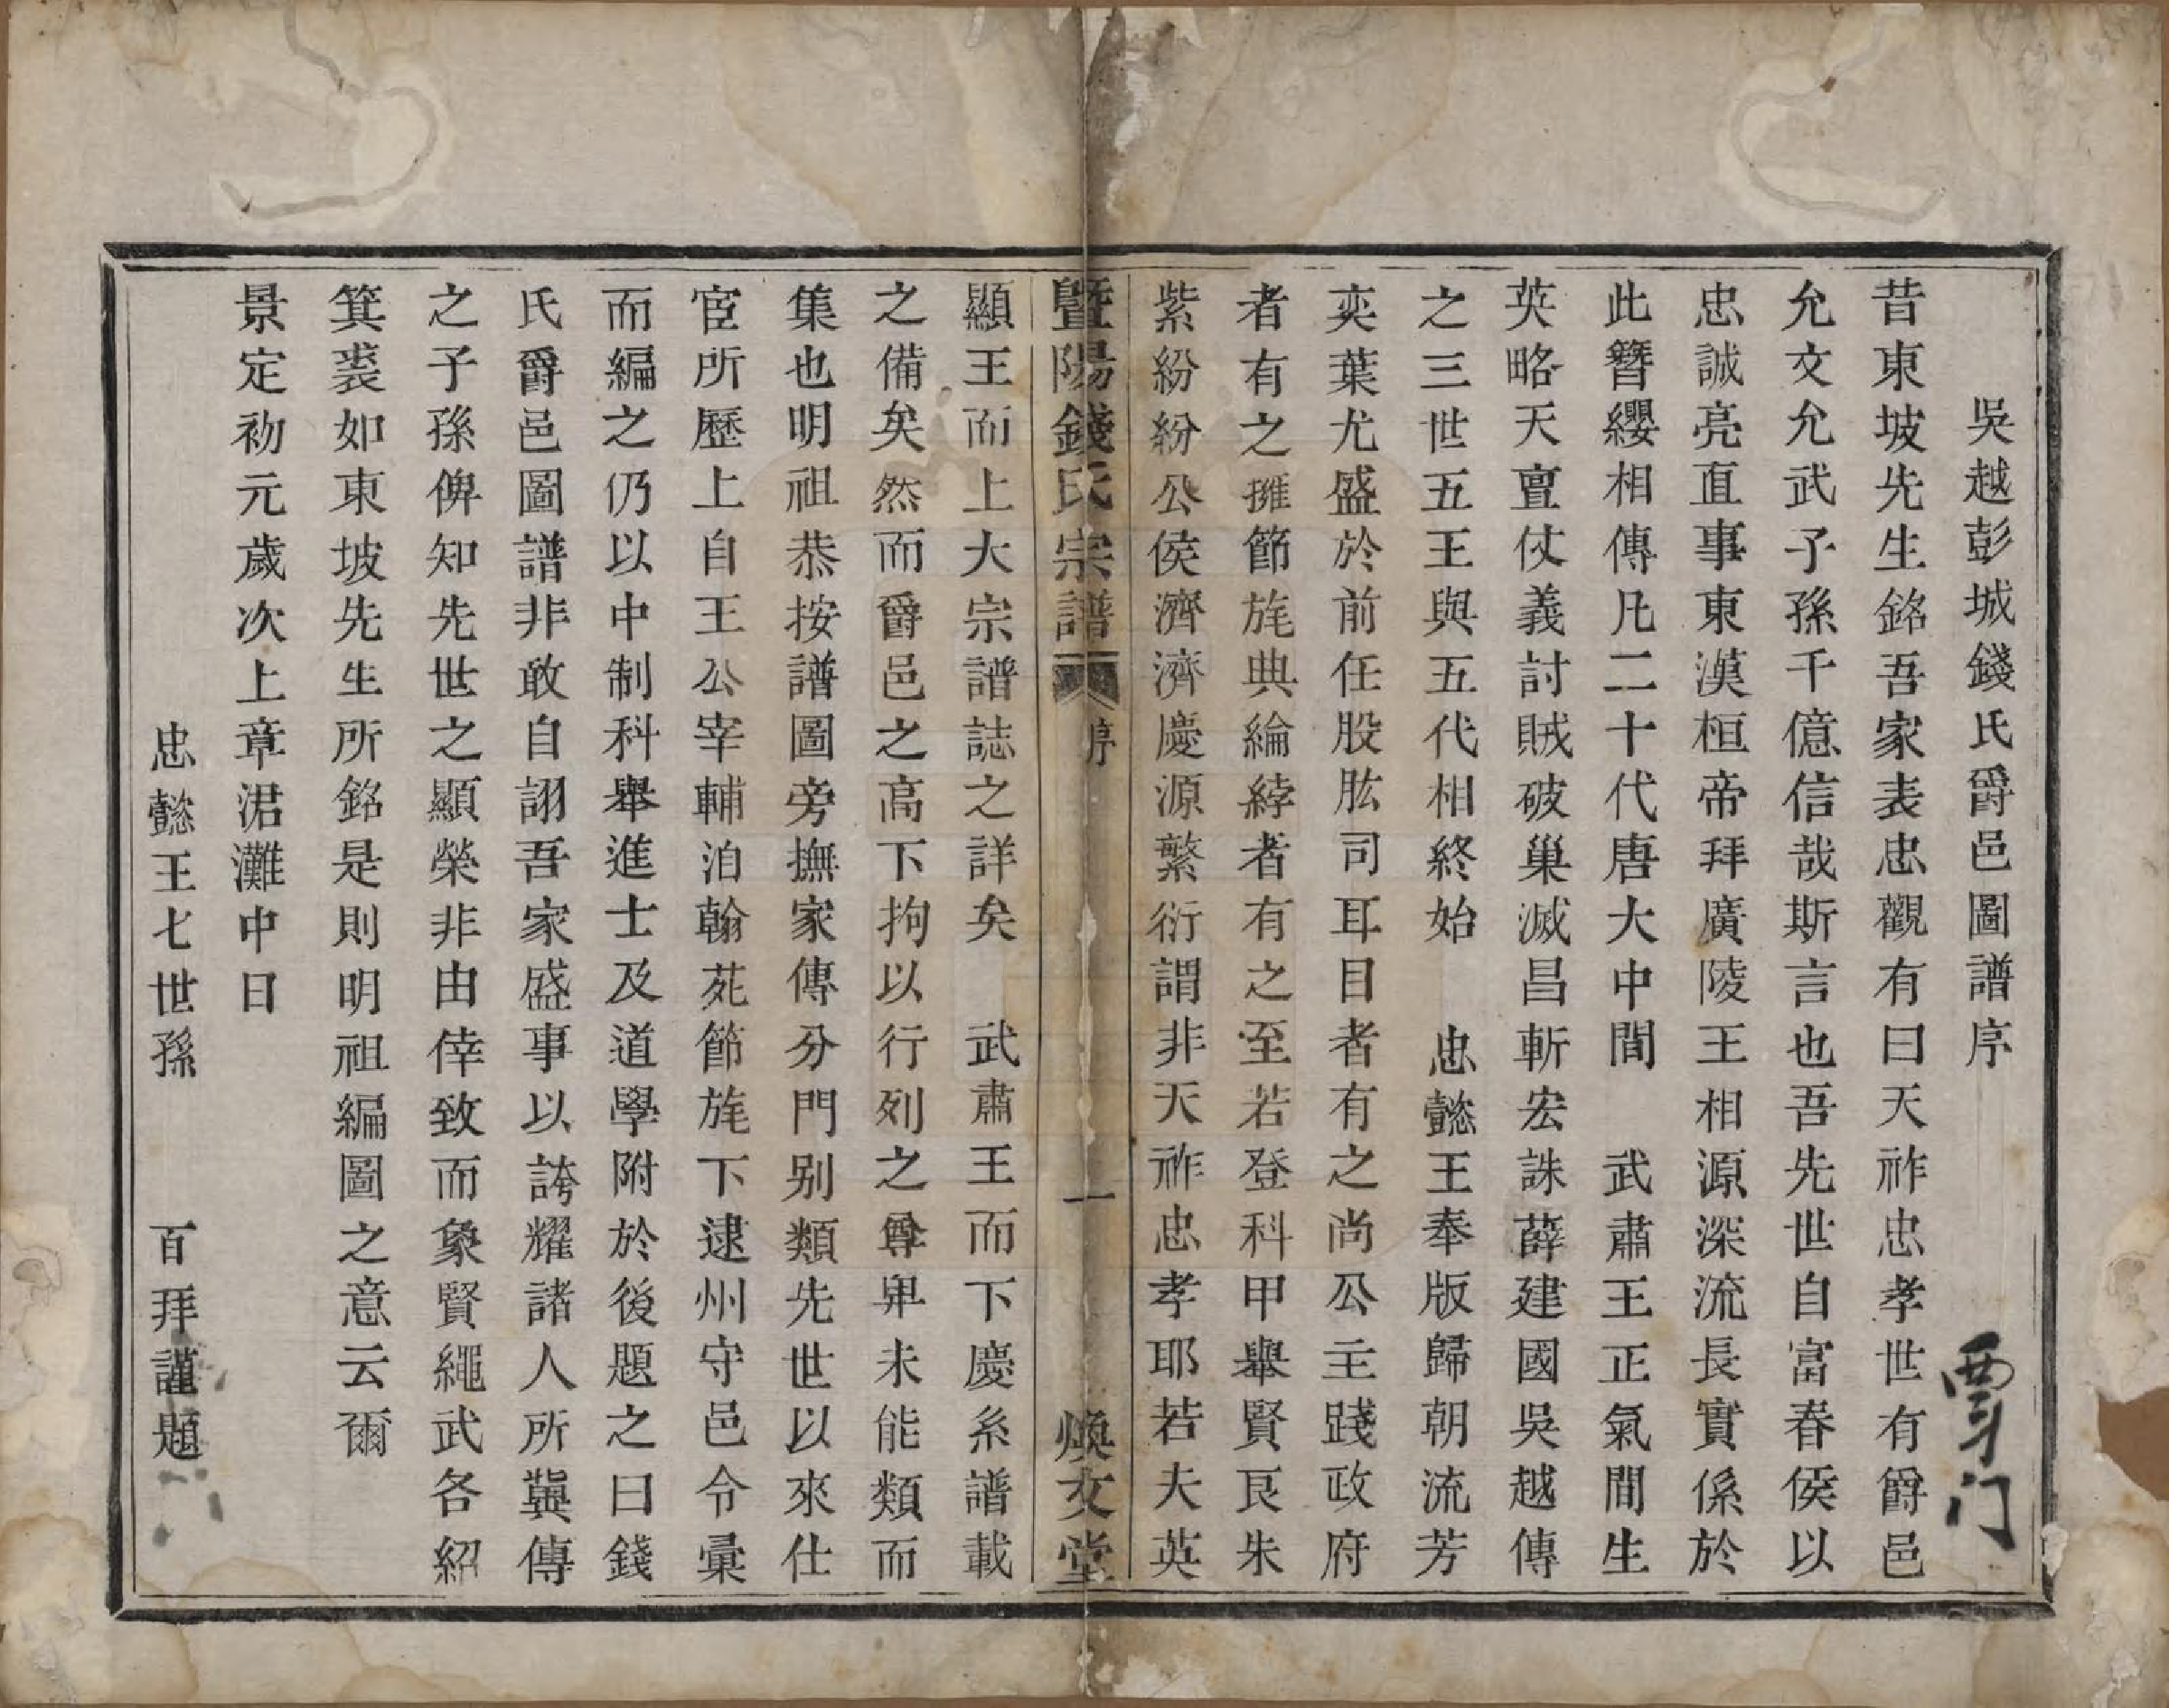 吳越彭城錢氏爵邑圖譜序
昔東坡先生銘吾家表忠觀有曰天祚忠孝世有爵邑
允文允武子孫千億信哉斯言也吾先世自富春侯以
忠誠亮直事東漢桓帝拜廣陵王相源深流長實係於
此簪纓相傳凡二十代唐大中間　武肅王正氣間生
英略天亶仗義討賊破巢滅昌斬宏誅薛建國吳越傳
之三世五王與五代相終始　忠懿王奉版歸朝流芳
奕葉尤盛於前任股肱司耳目者有之尚公主踐政府
者有之擁節旄典綸綍者有之至若登科甲舉賢良朱
紫紛紛公侯濟濟慶源繁衍謂非天祚忠孝耶若夫英
暨陽錢氏宗譜　序　一　煥文堂
顯王而上大宗譜誌之詳矣　武肅王而下慶系譜載
之備矣然而爵邑之高下拘以行列之尊卑未能類而
集也明祖恭按譜圖旁撫家傳分門別類先世以來仕
宦所歷上自王公宰輔洎翰苑節旄下逮州守邑令彙
而編之仍以中制科舉進士及道學附於後題之曰錢
氏爵邑圖譜非敢自詡吾家盛事以誇耀諸人所冀傳
之子孫俾知先世之顯榮非由倖致而象賢繩武各紹
箕裘如東坡先生所銘是則明祖編圖之意云爾
景定初元歲次上章涒灘中日
忠懿王七世孫　百拜謹題